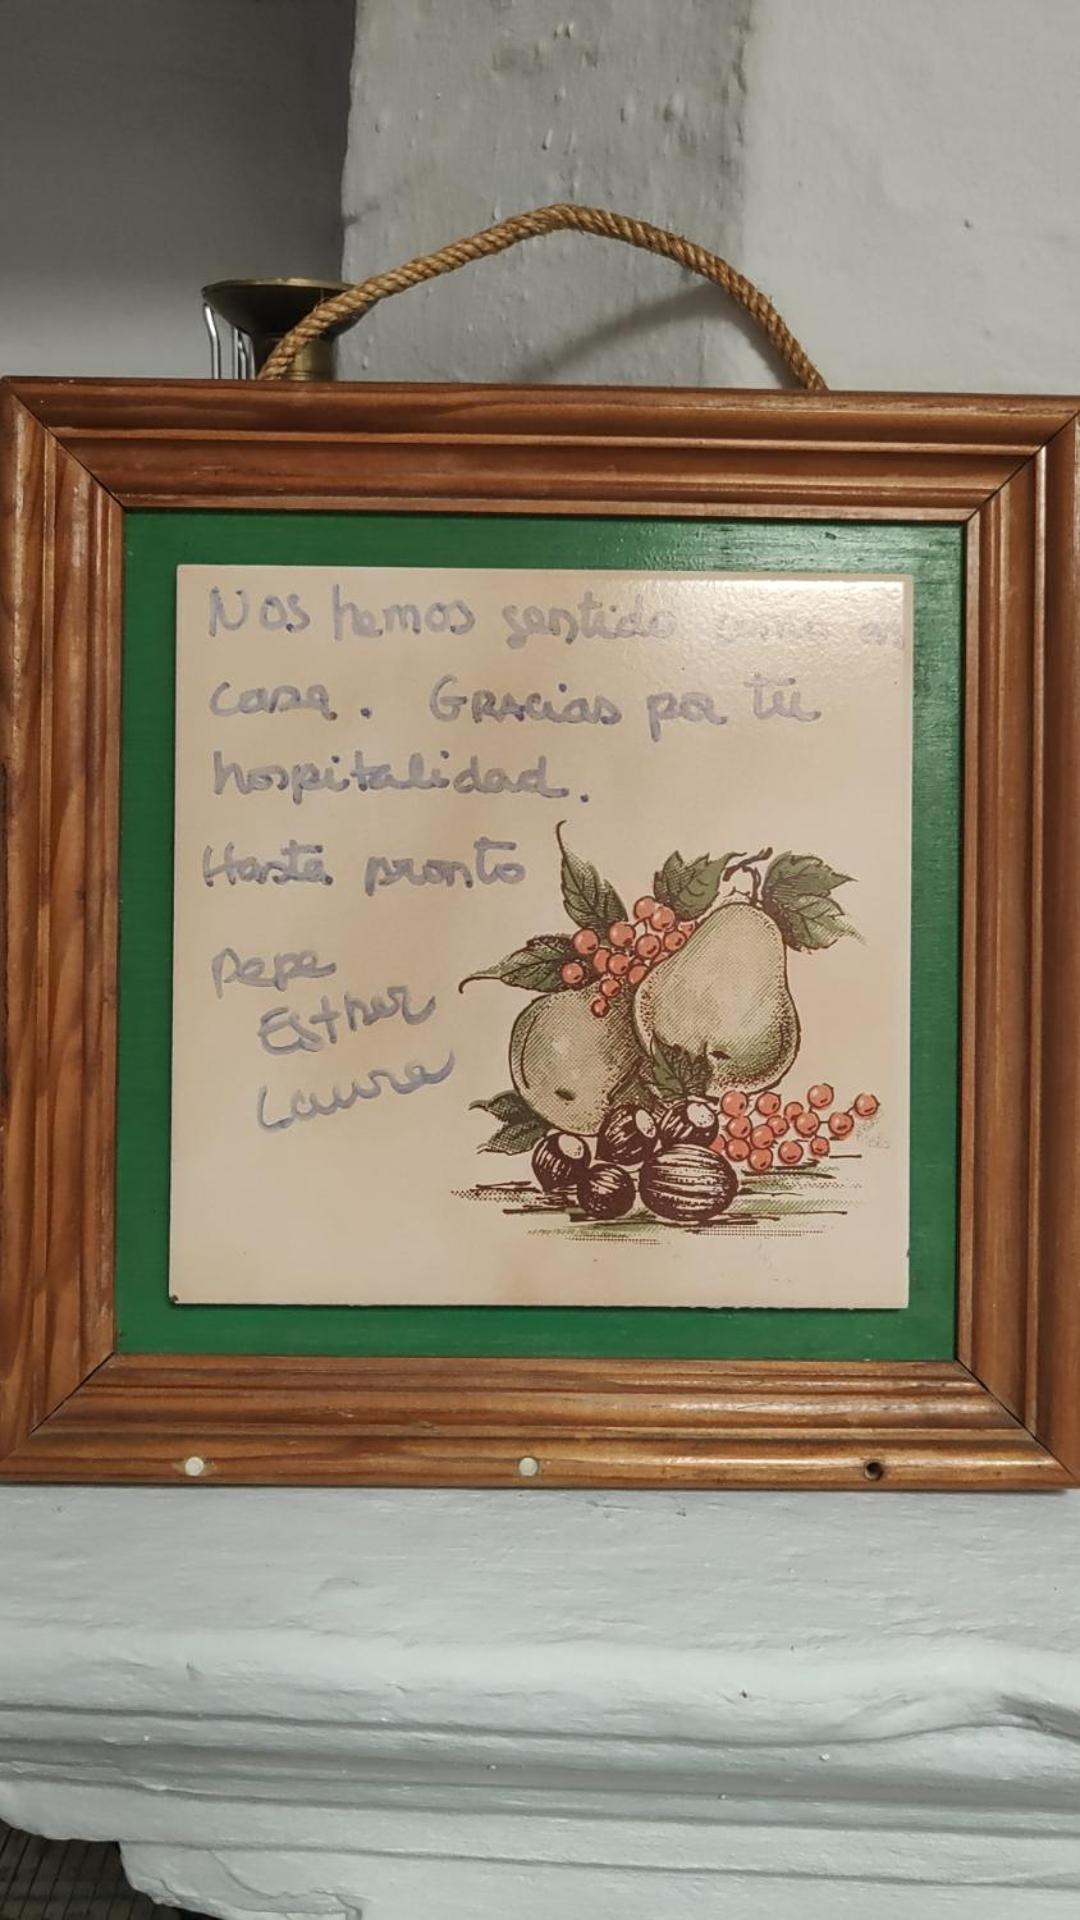 Nos hemos sentido como en
casa. GRACias por tu
hospitalidad.
Hasta pronto
Pepe
Esther
Laura